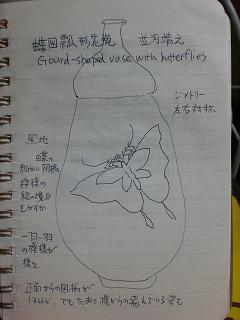 蝶図瓢形花瓶 並河靖之
Gourd-shaped vase with butterflies
シンメトリー
左右対称
黒地
蝶の
細かい図柄
模様の
一羽一羽
の模様が
違う
正面からの図柄が
ほとんど、でもたまに横からの飛んでいる姿も